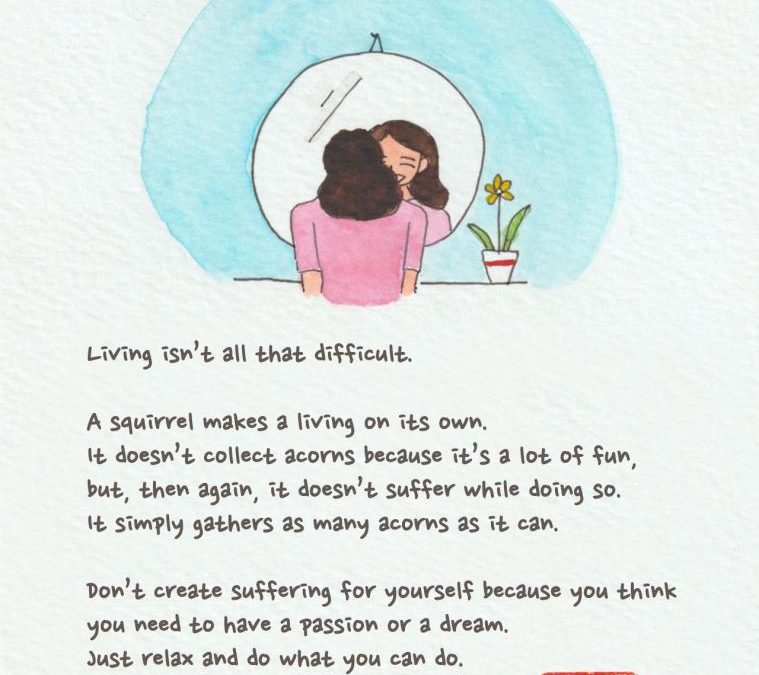 Living isn't all that difficult.
A squirrel makes a living on its own.
It doesn't collect acorns because it's a lot of fun,
but, then again, it doesn't suffer while doing so.
It simply gathers as many acorns as it can.
Don't create suffering for yourself because you think
you need to have a passion or a dream.
Just relax and do what you can do.